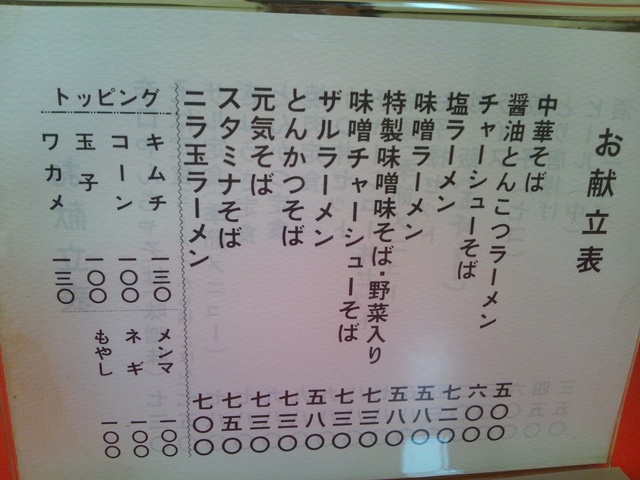 お献立表
中華そば 五〇〇
醤油とんこつラーメン 六〇〇
チャーシューそば 七二〇
塩ラーメン 五八〇
味噌ラーメン 五八〇
特製味噌味そば・野菜入り 七三〇
味噌チャーシューそば 七三〇
ザルラーメン 五八〇
とんかつそば 七三〇
元気そば 七三〇
スタミナそば 七五〇
ニラ玉ラーメン 七〇〇
トッピング
キムチ 一三〇
コーン 一〇〇
玉子 一〇〇
ワカメ 一三〇
メンマ 一〇〇
ネギ 一〇〇
もやし 一〇〇